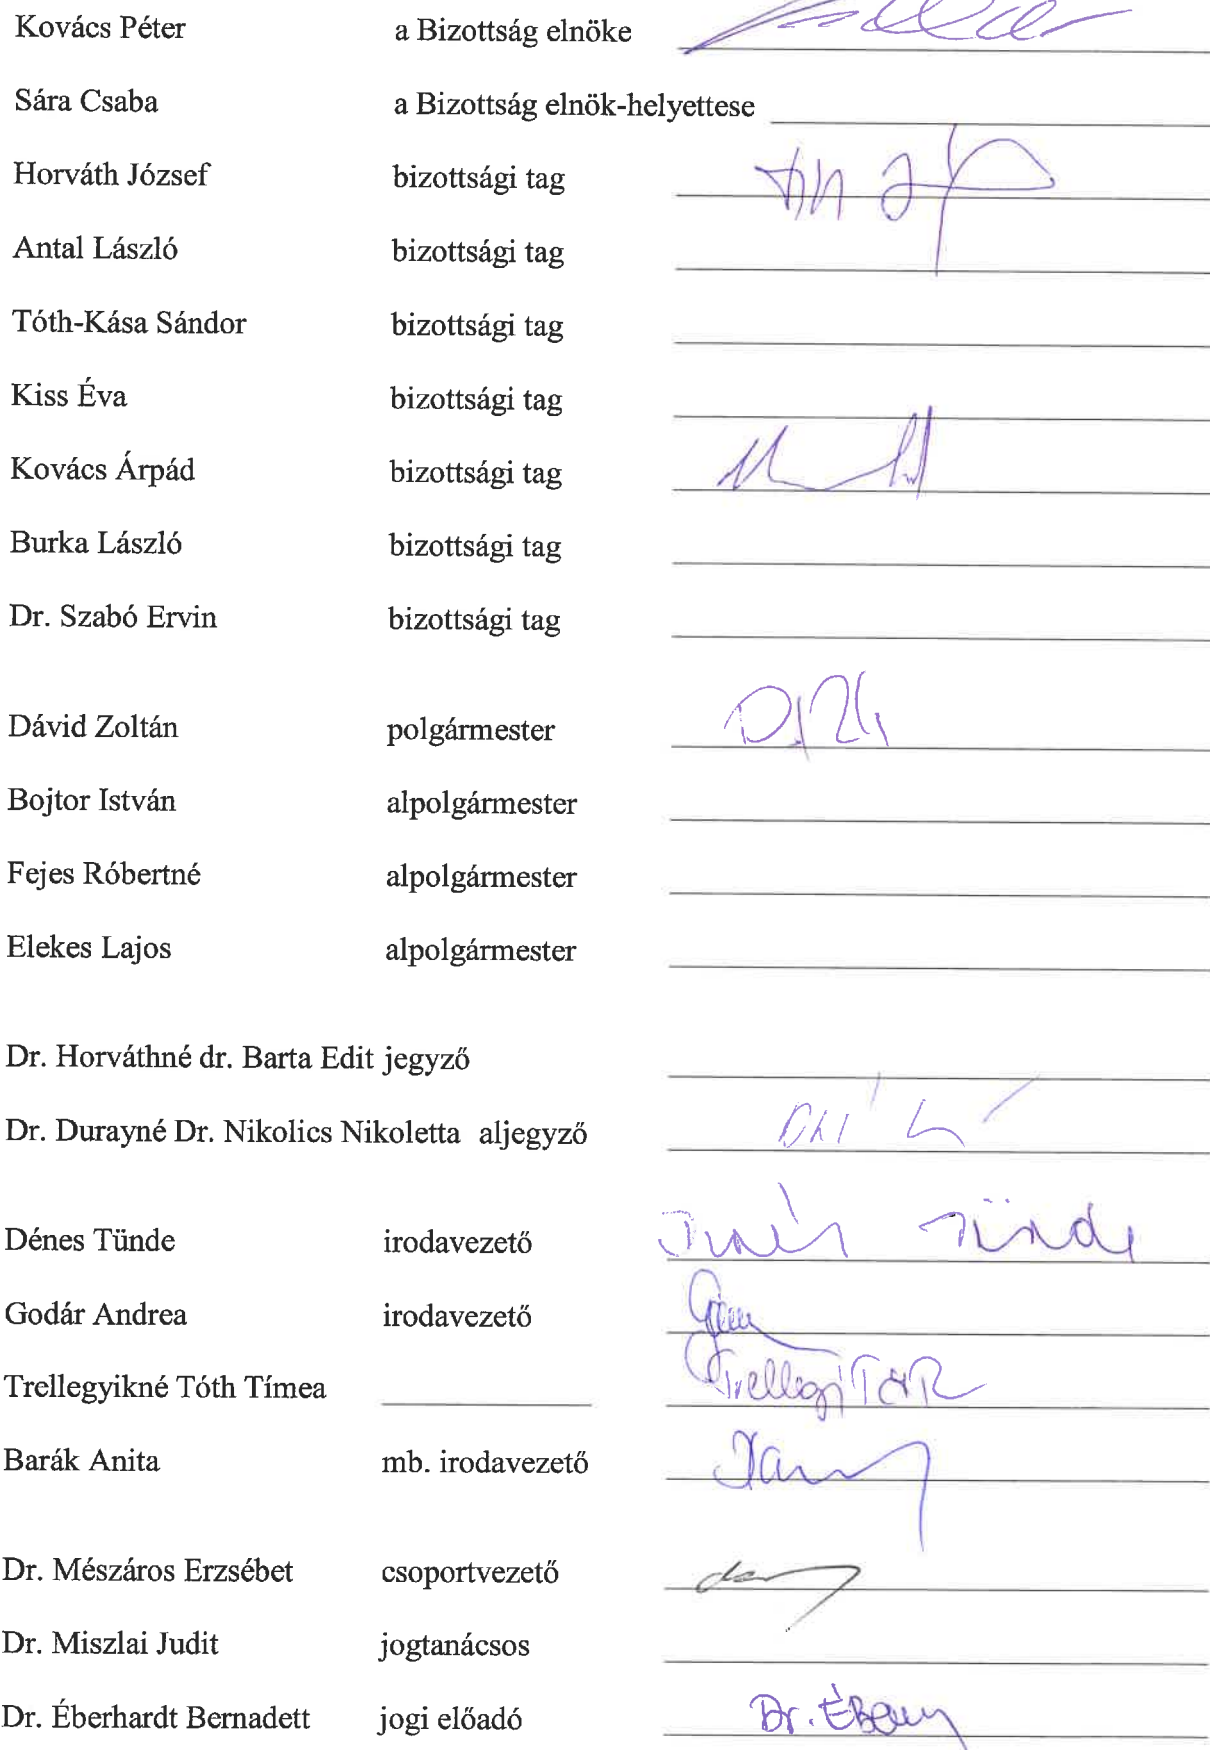 Kovács Péter a Bizottság elnöke
Sára Csaba a Bizottság elnök-helyettese
Horváth József bizottsági tag
Antal László bizottsági tag
Tóth-Kása Sándor bizottsági tag
Kiss Éva bizottsági tag
Kovács Árpád bizottsági tag
Burka László bizottsági tag
Dr. Szabó Ervin bizottsági tag
Dávid Zoltán polgármester
Bojtor István alpolgármester
Fejes Róbertné alpolgármester
Elekes Lajos alpolgármester
Dr. Horváthné dr. Barta Edit jegyző
Dr. Durayné Dr. Nikolics Nikoletta aljegyző
Dénes Tünde irodavezető Tünde
Godár Andrea irodavezető
Trellegyikné Tóth Tímea
Barák Anita mb. irodavezető
Dr. Mészáros Erzsébet csoportvezető
Dr. Miszlai Judit jogtanácsos
Dr. Éberhardt Bernadett jogi előadó Dr.